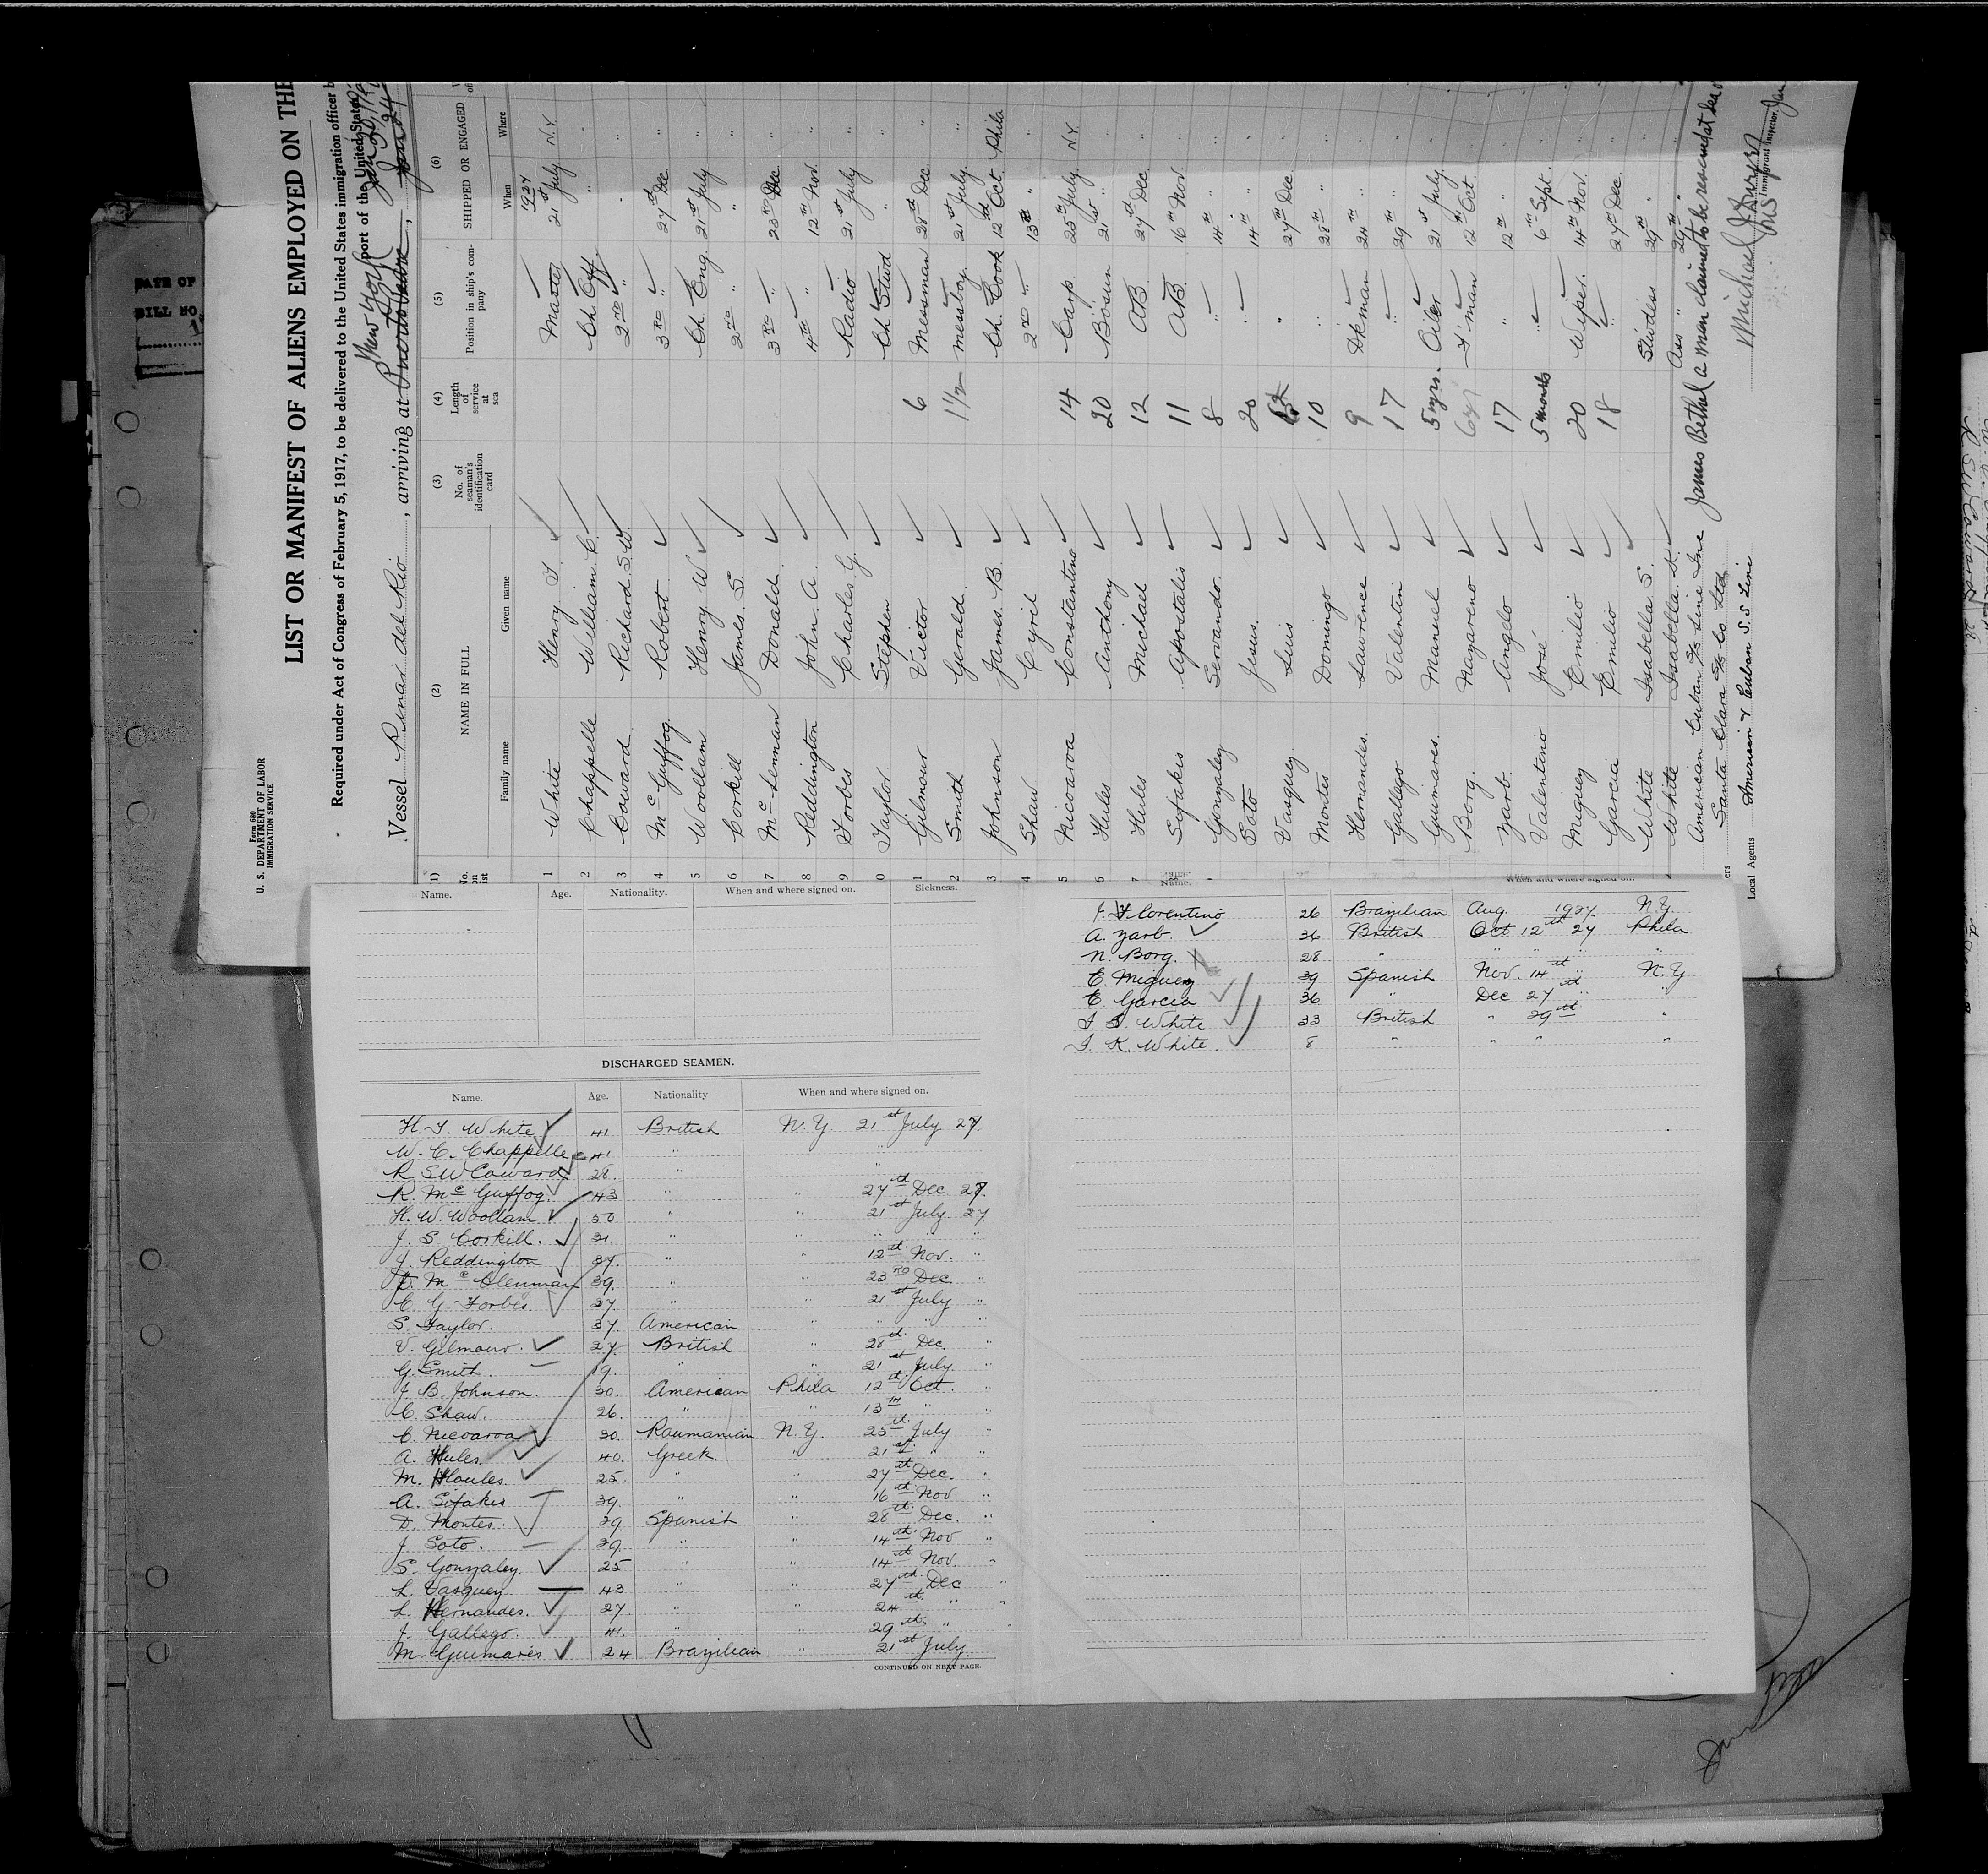 Form 680
U. S. DEPARTMENT OF LABOR
IMMIGRATION SERVICE
LIST OR MANIFEST OF ALIENS EMPLOYED ON THE
Required under Act of Congress of February 5, 1917, to be delivered to the United States immigration officer b
Vessel Pinar del Rio, arriving at New York port of the United States
(2) (3) (4) (5) (6)
NAME IN FULL No. of seaman's identification card Length of service at sea Position in ship's company SHIPPED OR ENGAGED
Family name Given name When Where
1 White Henry T. Master 21st July N.Y.
2 Chappelle William C. Ch. Off " "
3 Coward Richard S.W. 2nd " " "
4 McGuffog Robert 3rd " 27th Dec "
5 Woollam Henry W Ch. Eng 21st July "
6 Corkill James S. 2nd " " "
7 McLennan Donald 3rd " 23rd Dec "
8 Reddington John A. 4th " 12th Nov. "
9 Forbes Charles G. Radio 21st July "
0 Taylor Stephen Ch. Stwd " "
1 Gilmour Victor 6 Messman 28th Dec "
2 Smith Gerald 1 1/2 Messboy 21st July "
3 Johnson James B. Ch. Cook 12th Oct Phila
4 Shaw Cyril 2nd " 13th " "
5 Nicoaroa Constantino 14 Carp 25th July N.Y.
6 Hules Anthony 20 Bosun 21st " "
7 Hules Michael 12 AB 27th Dec "
Sifakis Apostalis 11 AB 16th Nov "
Gonzalez Servando 8 " 14th " "
Soto Jesus 20 " 14th " "
Vasquez Luis " 27th Dec "
Montes Domingo 10 " 28th " "
Hernandes Lawrence 9 Dkman 24th " "
Gallego Valentin 17 " 29th " "
Guimares Manuel 5 yrs. Oiler 21st July "
Borg Nazareno F'man 12th Oct "
Zarb. Angelo 17 " 12th " "
Valentino José 5 months " 6th Sept. "
Miguez Emilio 20 Wiper. 14th Nov. "
Garcia Emilio 18 " 27th Dec. "
White Isabella S. Stwdess 29th " "
White Isabella K. Ass " 29th " "
American Cuban S/S Line Inc James Bethel a man claimed to be rescued at Sea
Santa Clara S/S Co Ltd
Local Agents American & Cuban S.S Line
Immigrant Inspector.
Name. Age. Nationality. When and where signed on. Sickness.
DISCHARGED SEAMEN.
Name. Age. Nationality When and where signed on.
H. T. White 41 British N.Y. 21st July 27.
W. C. Chappelle 41 " "
R. S W Coward 28. " "
R. McGuffog. 43 " " 27th Dec 27.
H. W. Woollam 50 " " 21st July. 27
J. S Corkill. 31. " " " "
J. Reddington 37. " " 12th Nov. "
D. McClenman 39. " 23rd Dec "
C G Forbes. 27. " " 21st July "
S. Taylor. 37. American " " " "
V. Gilmour. 27. British " 28th Dec. "
G. Smith. 19. " " 21st July "
J. B. Johnson. 30. American Phila 12th Oct. "
C. Shaw. 26. " " 13th " "
C. Nicoaroa 30. Roumanian N.Y. 25th July "
A. Hules. 40. Greek " 21st " "
M. Houles. 25. " " 27th Dec. "
A. Sifakis 39. " " 16th Nov "
D. Montes. 39. Spanish " 28th Dec. "
J. Soto. 39. " " 14th Nov "
S. Gonzalez. 25 " " 14th Nov. "
L. Vasquez 43 " " 27th Dec "
L. Hernandes. 27. " " 24th " "
J. Gallego. 41. " " 29th " "
M. Guimares 24 Brazilian " 21st July.
CONTINUED ON NEXT PAGE.
Name. When and where signed on.
J. Florentino 26 Brazilian Aug. 1927. N.Y.
A. Zarb. 36 British Oct 12th 27 Phila
N. Borg. 28 " " " "
E. Miguez 39 Spanish Nov. 14th " N.Y
E. Garcia 36 " Dec. 27th " "
I S. White 33 British " 29th "
I. K. White. 8 " " " "